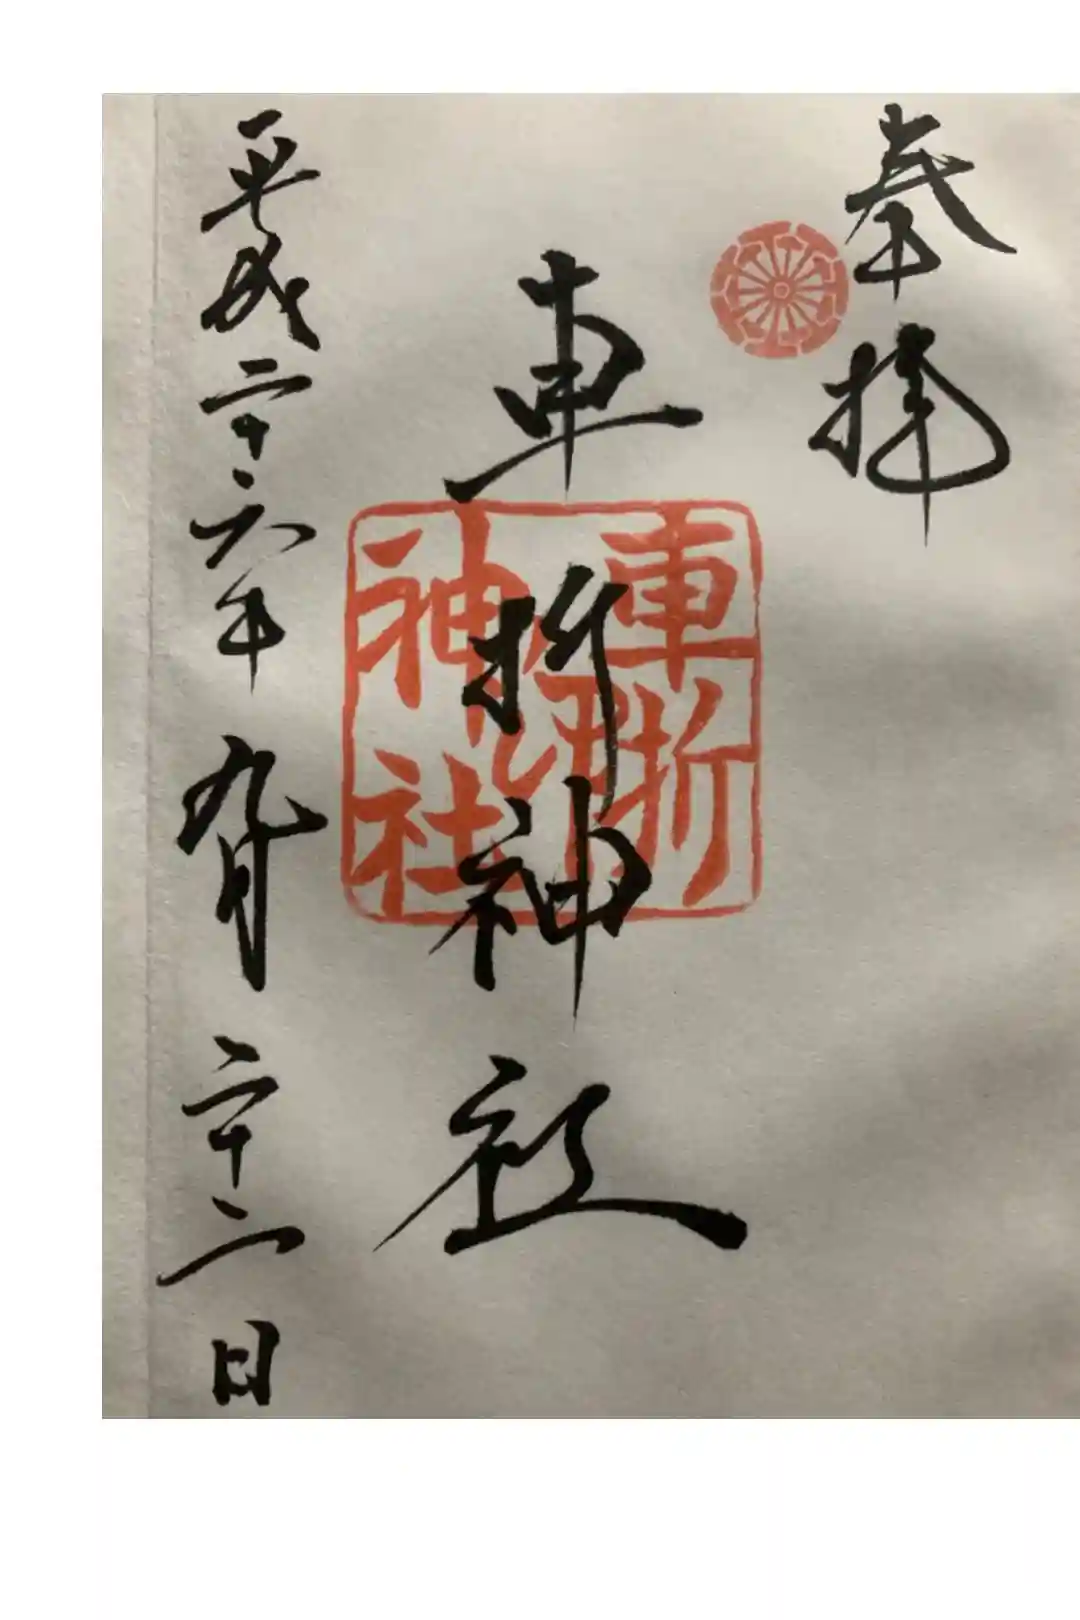 奉拝
車折神社
車折神社之印
平成二十六年九月二十二日